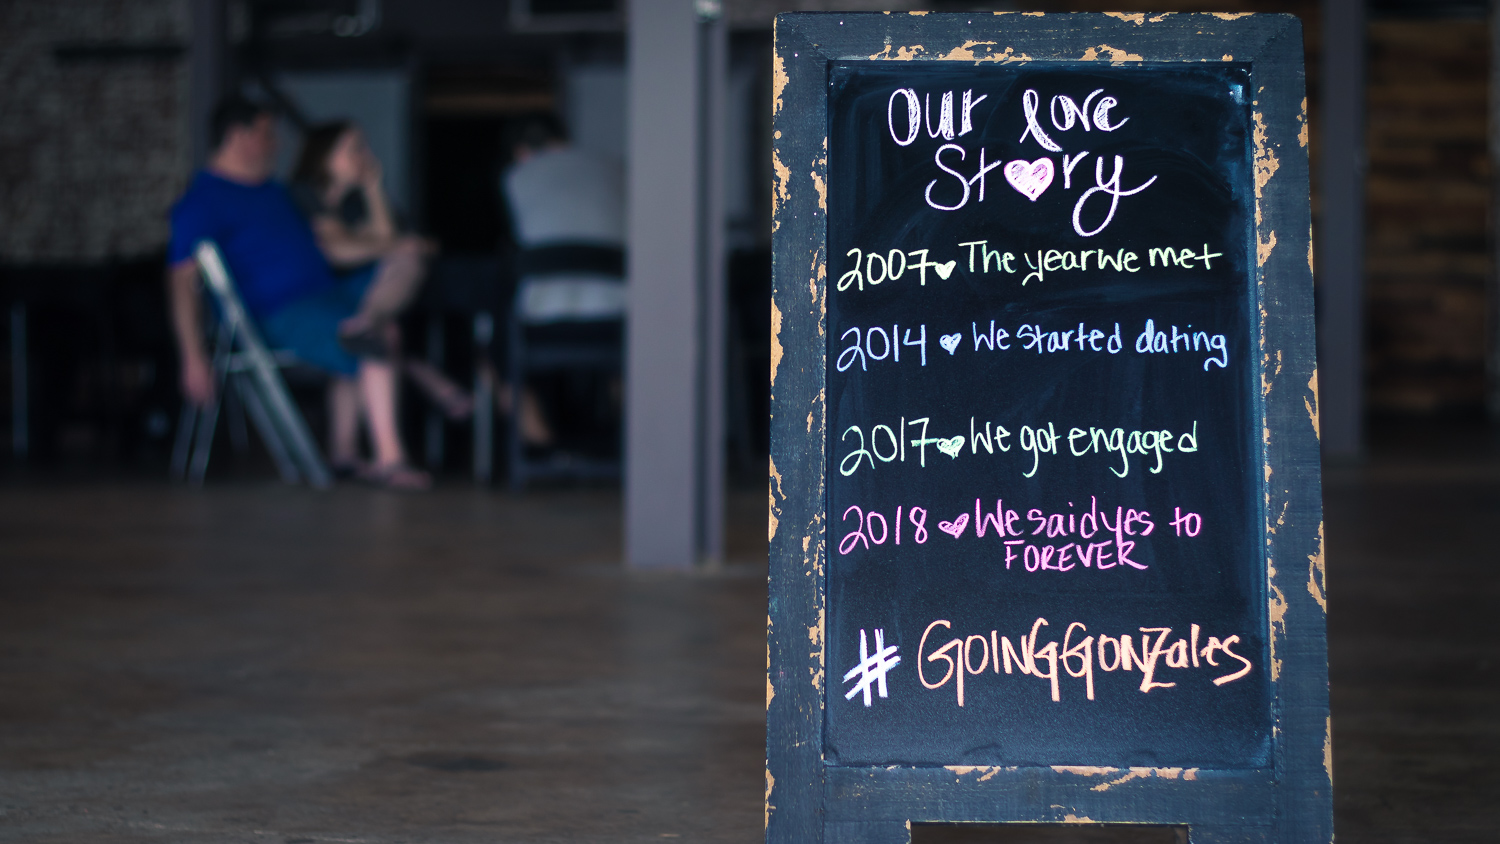 Our love
Story
2007 The year we met
2014 We started dating
2017 We got engaged
2018 We said yes to
FOREVER
# GOINGGONZales